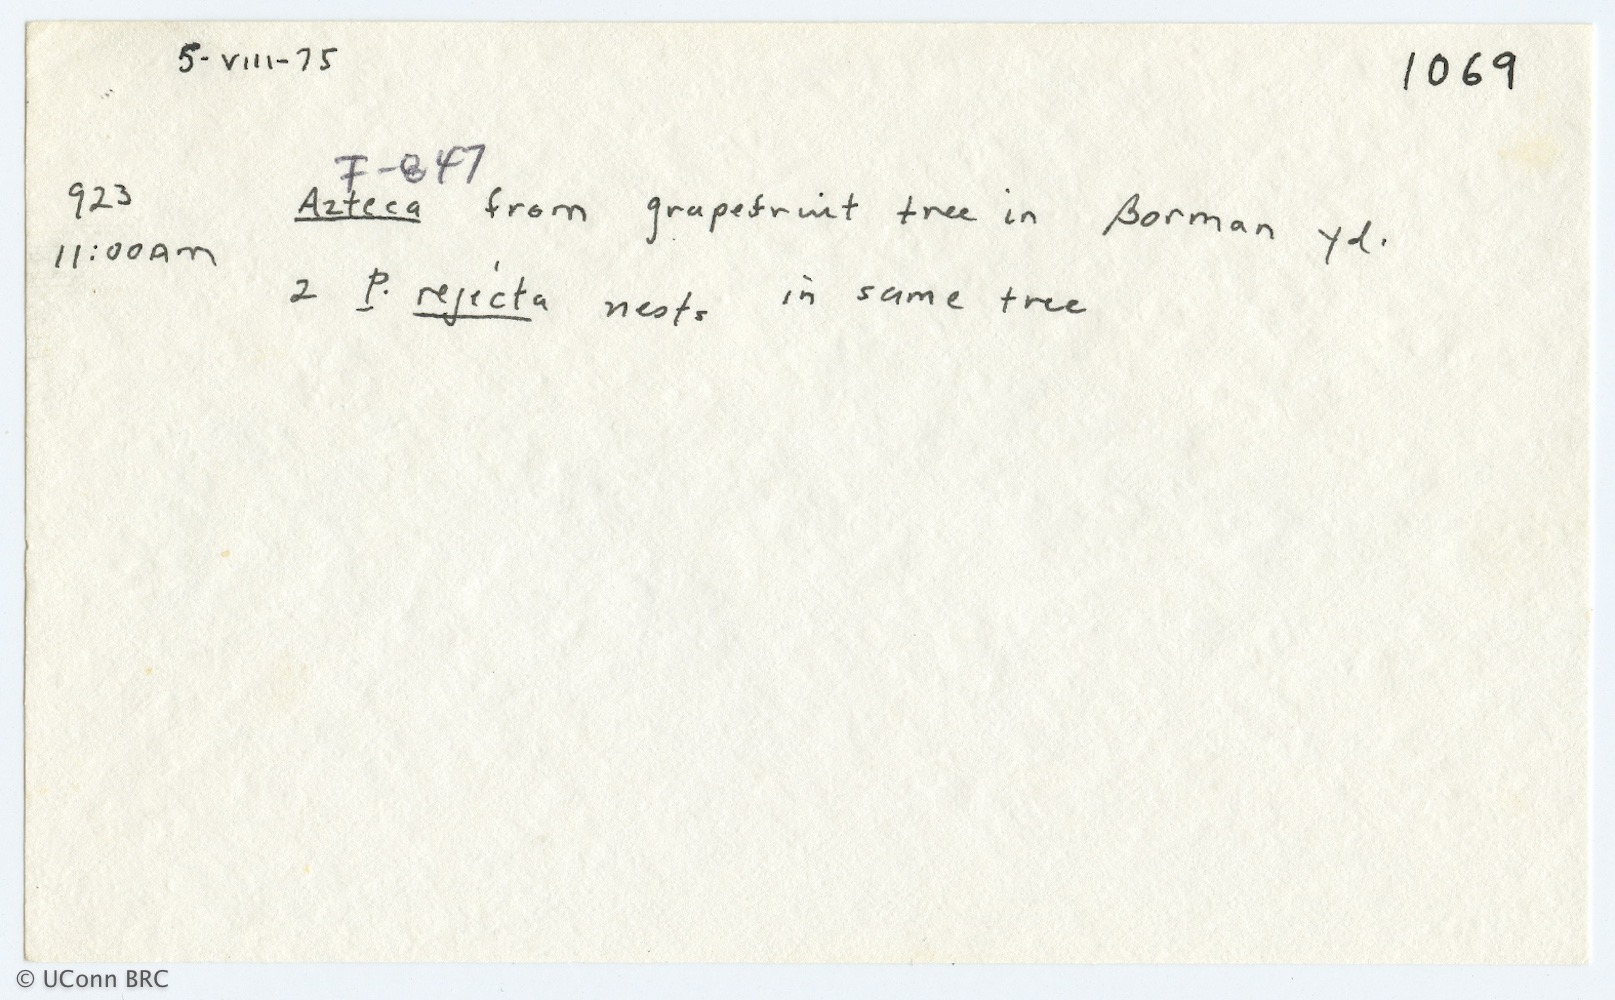 5-VIII-75
1069
F-847
923 Azteca from grapefruit tree in Borman yd.
11:00AM
2 P. rejecta nests in same tree
© UConn BRC